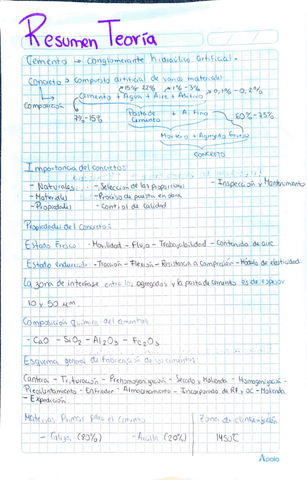 Resumen Teoría
Cemento → conglomerante hidráulico artificial.
Concreto → compuesto artificial de varios materiales
15%-22% 1%-3% 0,1%-0,2%
Composición Cemento + Agua + Aire + Aditivo
7%-15% Pasta de cemento + A. Fino 60%-75%
Mortero + Agregado Grueso
CONCRETO
Importancia del concreto:
- Naturales - Selección de las proporciones - Inspección y Mantenimiento
- Materiales - Proceso de puesta en obra
- Propiedades - Control de calidad
Propiedades del Concreto:
Estado Fresco - Movilidad - Flujo - Trabajabilidad - Contenido de aire
Estado endurecido - Tracción - Flexión - Resistencia a compresión - Módulo de elasticidad
La zona de interfase entre los agregados y la pasta de cemento es de espesor
10 y 50 µm.
Composición química del cemento:
- CaO - SiO2 - Al2O3 - Fe2O3
Esquema general de fabricación de los cementos:
Cantera - Trituración - Prehomogenización - Secado y Molienda - Homogenización -
Precalentamiento - Enfriador - Almacenamiento - Incorporado de RF, OC - Molienda
- Expedición.
Materias Primas para el cemento Zona de clinkerización
- Caliza (80%) - Arcilla (20%) 1450°C
Apolo